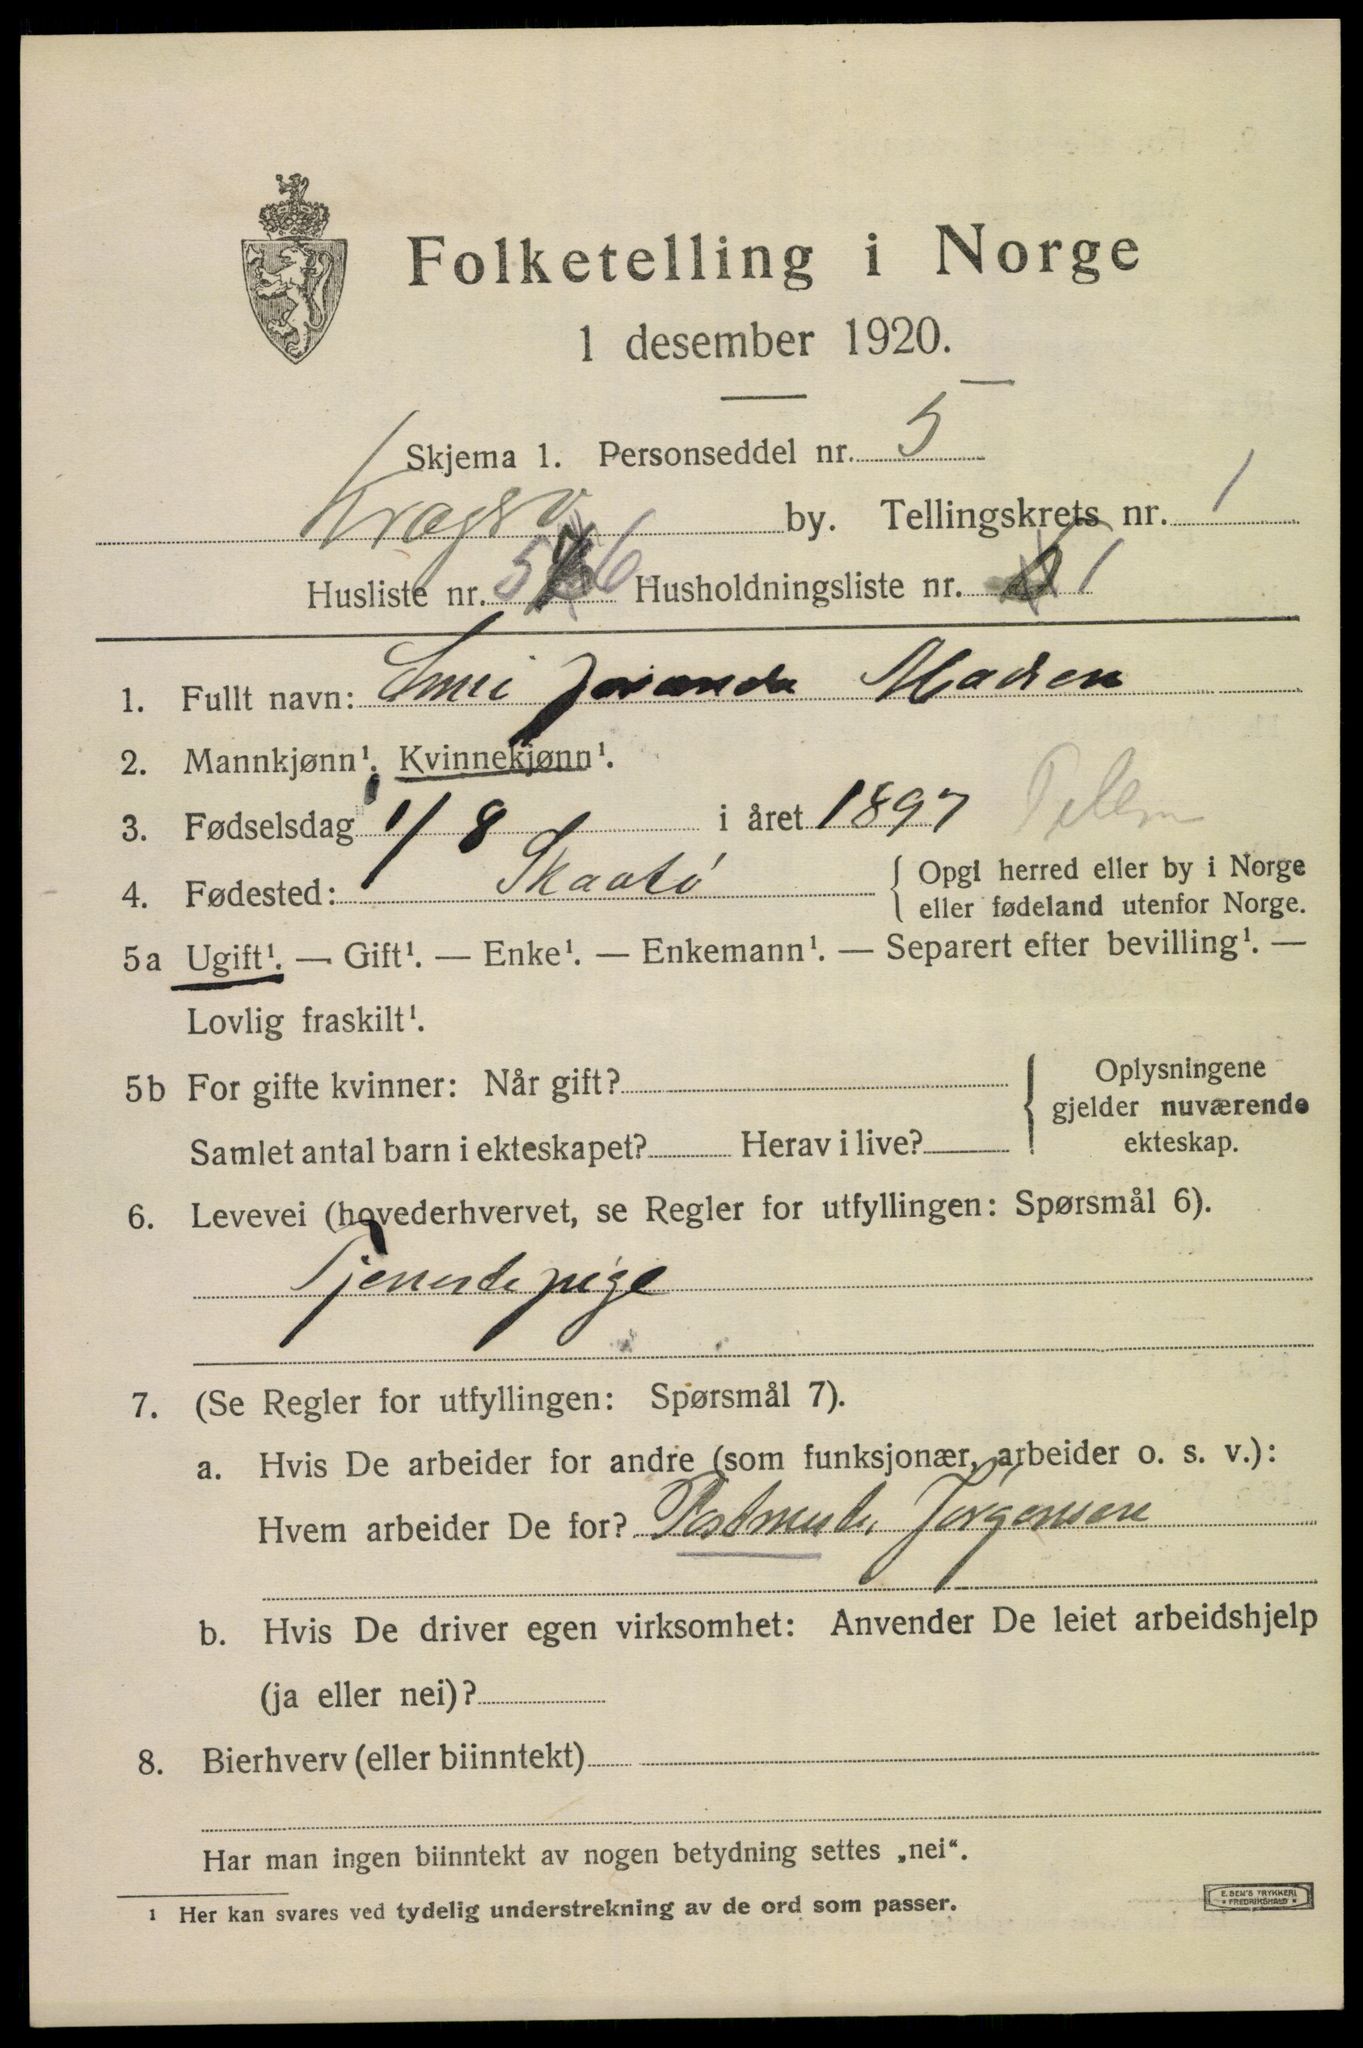 Folketelling i Norge
1 desember 1920.
Skjema 1. Personseddel nr. 5
Kragerø by. Tellingskrets nr. 1
Husliste nr. 56 Husholdningsliste nr. 1
1. Fullt navn: Madsen
2. Mannkjønn¹. Kvinnekjønn¹.
3. Fødselsdag 1/8 i året 1897 Telem
4. Fødested: Skaatø { Opgi herred eller by i Norge
eller fødeland utenfor Norge.
5a Ugift¹. — Gift¹. — Enke¹. — Enkemann¹. — Separert efter bevilling¹. —
Lovlig fraskilt¹.
5b For gifte kvinner: Når gift? { Oplysningene
gjelder nuværende
Samlet antal barn i ekteskapet? Herav i live? ekteskap.
6. Levevei (hovederhvervet, se Regler for utfyllingen: Spørsmål 6).
Tjenestepige
7. (Se Regler for utfyllingen: Spørsmål 7).
a. Hvis De arbeider for andre (som funksjonær, arbeider o. s. v.):
Hvem arbeider De for? Postmester Jørgensen
b. Hvis De driver egen virksomhet: Anvender De leiet arbeidshjelp
(ja eller nei)?
8. Bierhverv (eller biinntekt)
Har man ingen biinntekt av nogen betydning settes „nei“.
¹ Her kan svares ved tydelig understrekning av de ord som passer.
E. SEM'S TRYKKERI
* FREDRIKSHALD *